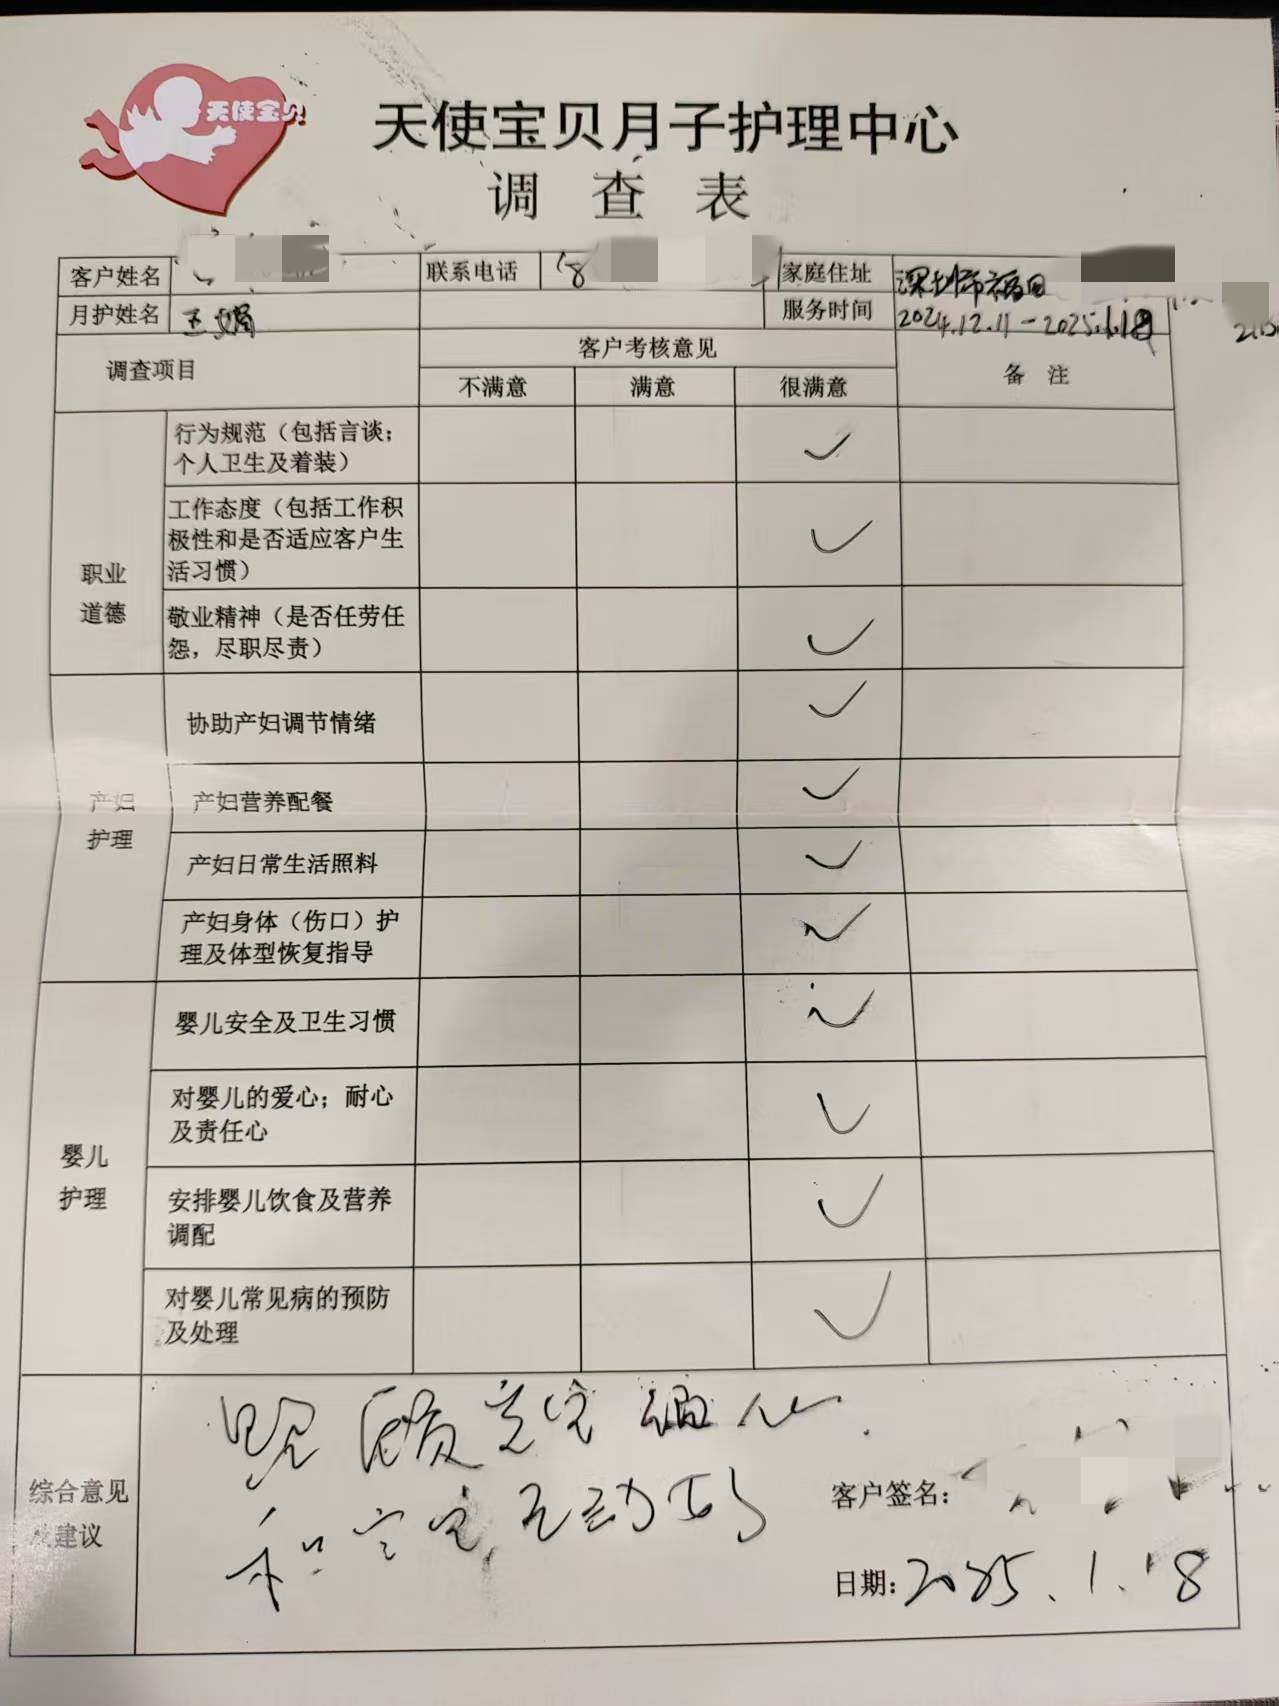 天使宝贝
天使宝贝月子护理中心
调 查 表
客户姓名 联系电话 18 家庭住址 深圳市福田
月护姓名 王娟 服务时间 2024.12.11-2025.1.18
调查项目 客户考核意见 备 注
不满意 满意 很满意
职业
道德
行为规范（包括言谈；
个人卫生及着装） ✓
工作态度（包括工作积
极性和是否适应客户生
活习惯） ✓
敬业精神（是否任劳任
怨，尽职尽责） ✓
产妇
护理
协助产妇调节情绪 ✓
产妇营养配餐 ✓
产妇日常生活照料 ✓
产妇身体（伤口）护
理及体型恢复指导 ✓
婴儿
护理
婴儿安全及卫生习惯 ✓
对婴儿的爱心；耐心
及责任心 ✓
安排婴儿饮食及营养
调配 ✓
对婴儿常见病的预防
及处理 ✓
综合意见
及建议
照顾宝宝细心
和宝宝互动好
客户签名：
日期：2025.1.18